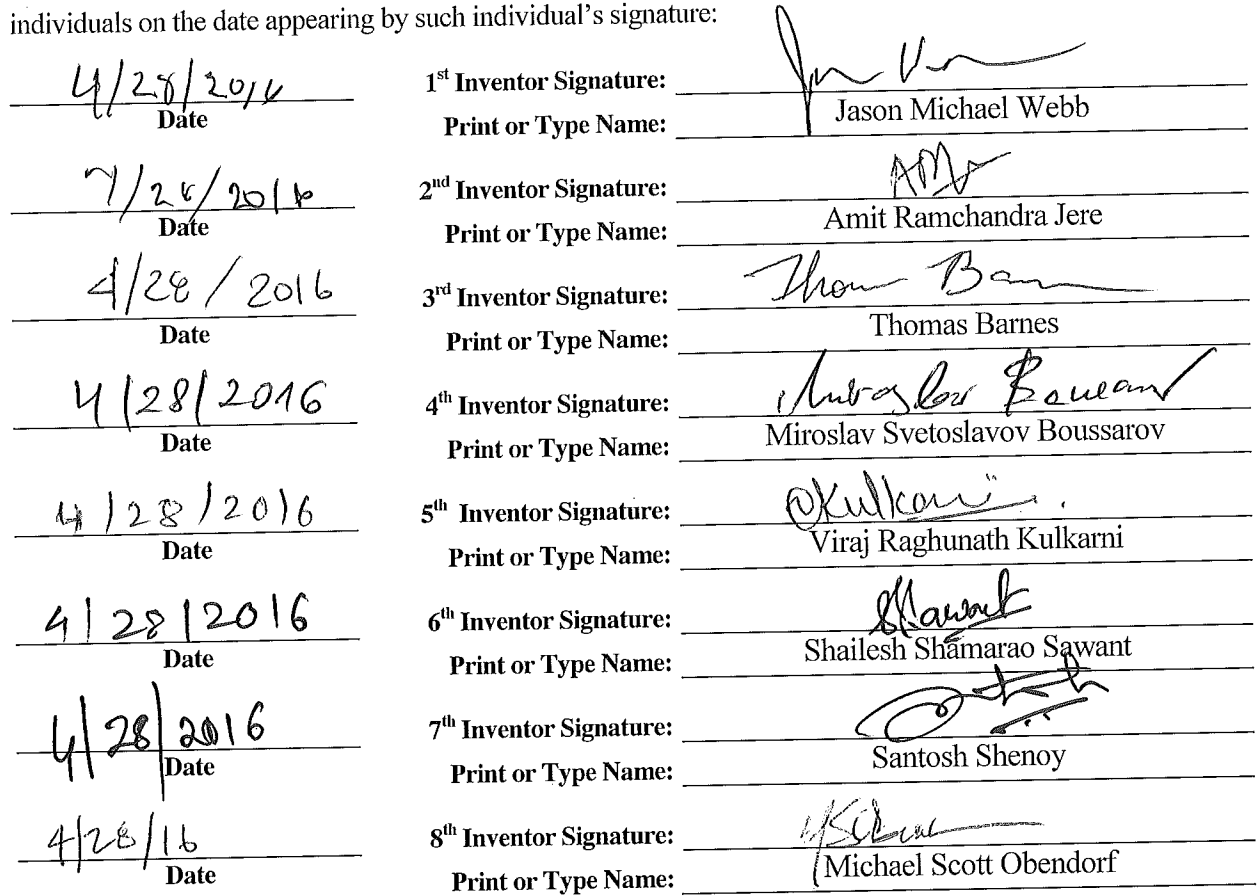 individuals on the date appearing by such individual's signature:
4/28/2016 1st Inventor Signature:
Date Print or Type Name: Jason Michael Webb
2nd Inventor Signature:
Date Print or Type Name: Amit Ramchandra Jere
4/28/2016 3rd Inventor Signature: Thom Barn
Date Print or Type Name: Thomas Barnes
4/28/2016 4th Inventor Signature:
Date Print or Type Name: Miroslav Svetoslavov Boussarov
4/28/2016 5th Inventor Signature: Kulkarni
Date Print or Type Name: Viraj Raghunath Kulkarni
4/28/2016 6th Inventor Signature: SSawant
Date Print or Type Name: Shailesh Shamarao Sawant
4/28/2016 7th Inventor Signature:
Date Print or Type Name: Santosh Shenoy
4/28/16 8th Inventor Signature:
Date Print or Type Name: Michael Scott Obendorf